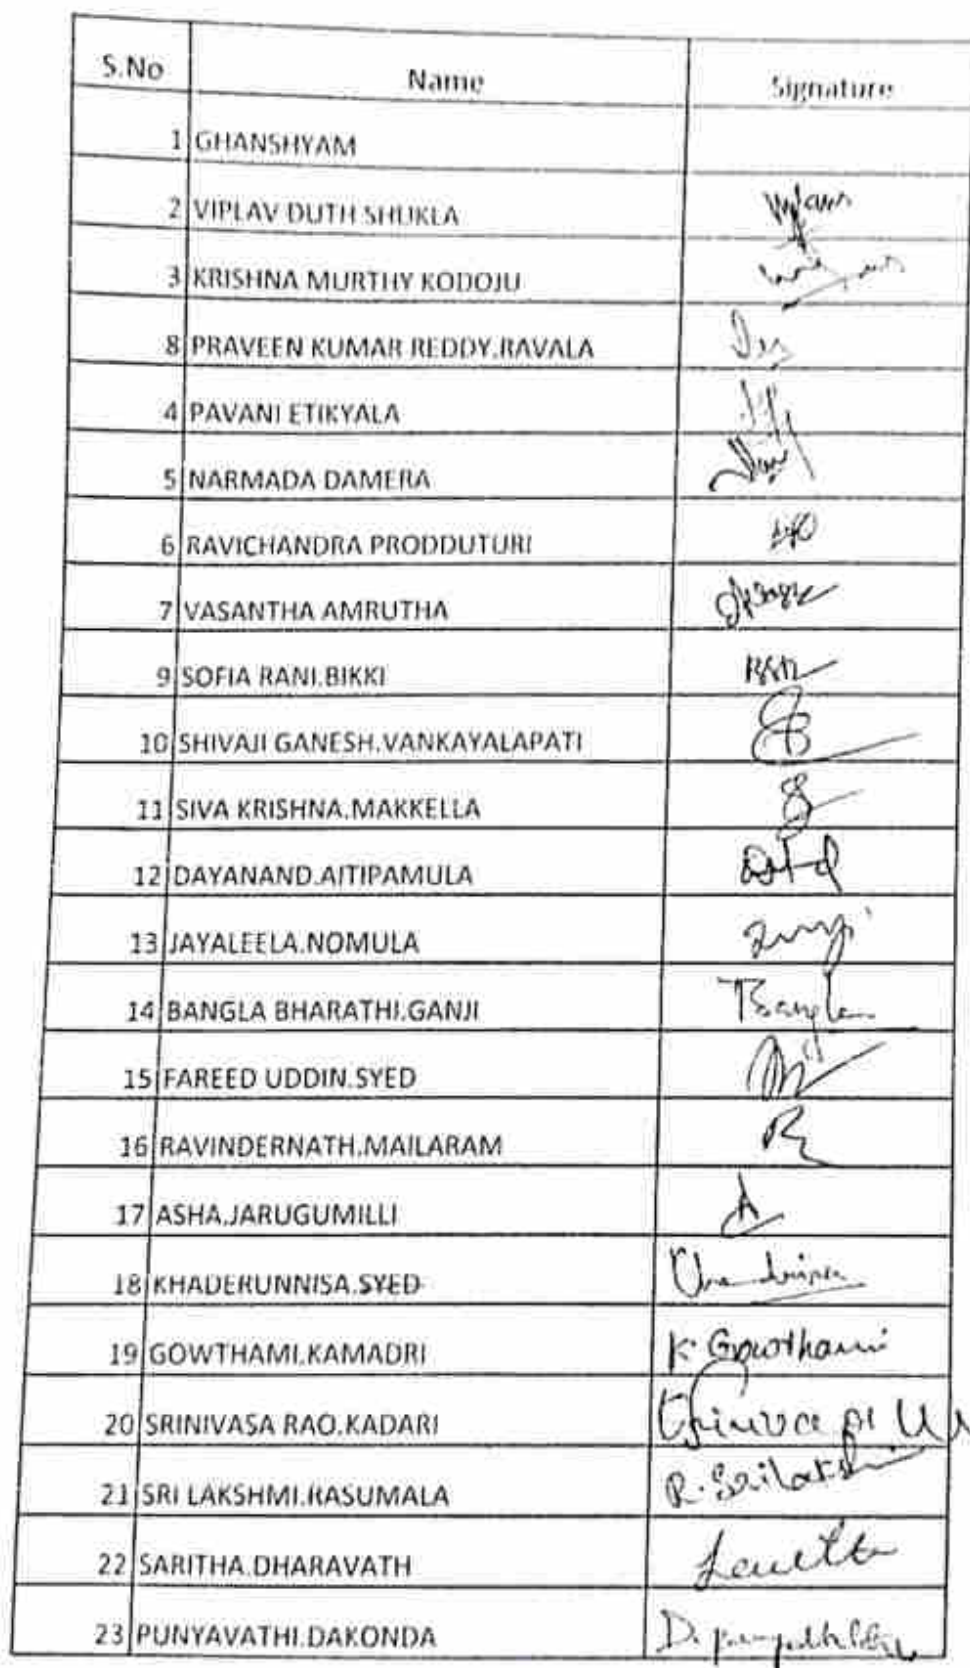 S.No Name Signature
1 GHANSHYAM
2 VIPLAV DUTH SHUKLA
3 KRISHNA MURTHY KODOJU
8 PRAVEEN KUMAR REDDY.RAVALA
4 PAVANI ETIKYALA
5 NARMADA DAMERA
6 RAVICHANDRA PRODDUTURI
7 VASANTHA AMRUTHA
9 SOFIA RANI.BIKKI
10 SHIVAJI GANESH.VANKAYALAPATI
11 SIVA KRISHNA.MAKKELLA
12 DAYANAND.AITIPAMULA
13 JAYALEELA.NOMULA
14 BANGLA BHARATHI.GANJI
15 FAREED UDDIN.SYED
16 RAVINDERNATH.MAILARAM
17 ASHA.JARUGUMILLI A
18 KHADERUNNISA.SYED
19 GOWTHAMI.KAMADRI K. Gowthami
20 SRINIVASA RAO.KADARI
21 SRI LAKSHMI.RASUMALA R. Srilakshmi
22 SARITHA.DHARAVATH
23 PUNYAVATHI.DAKONDA